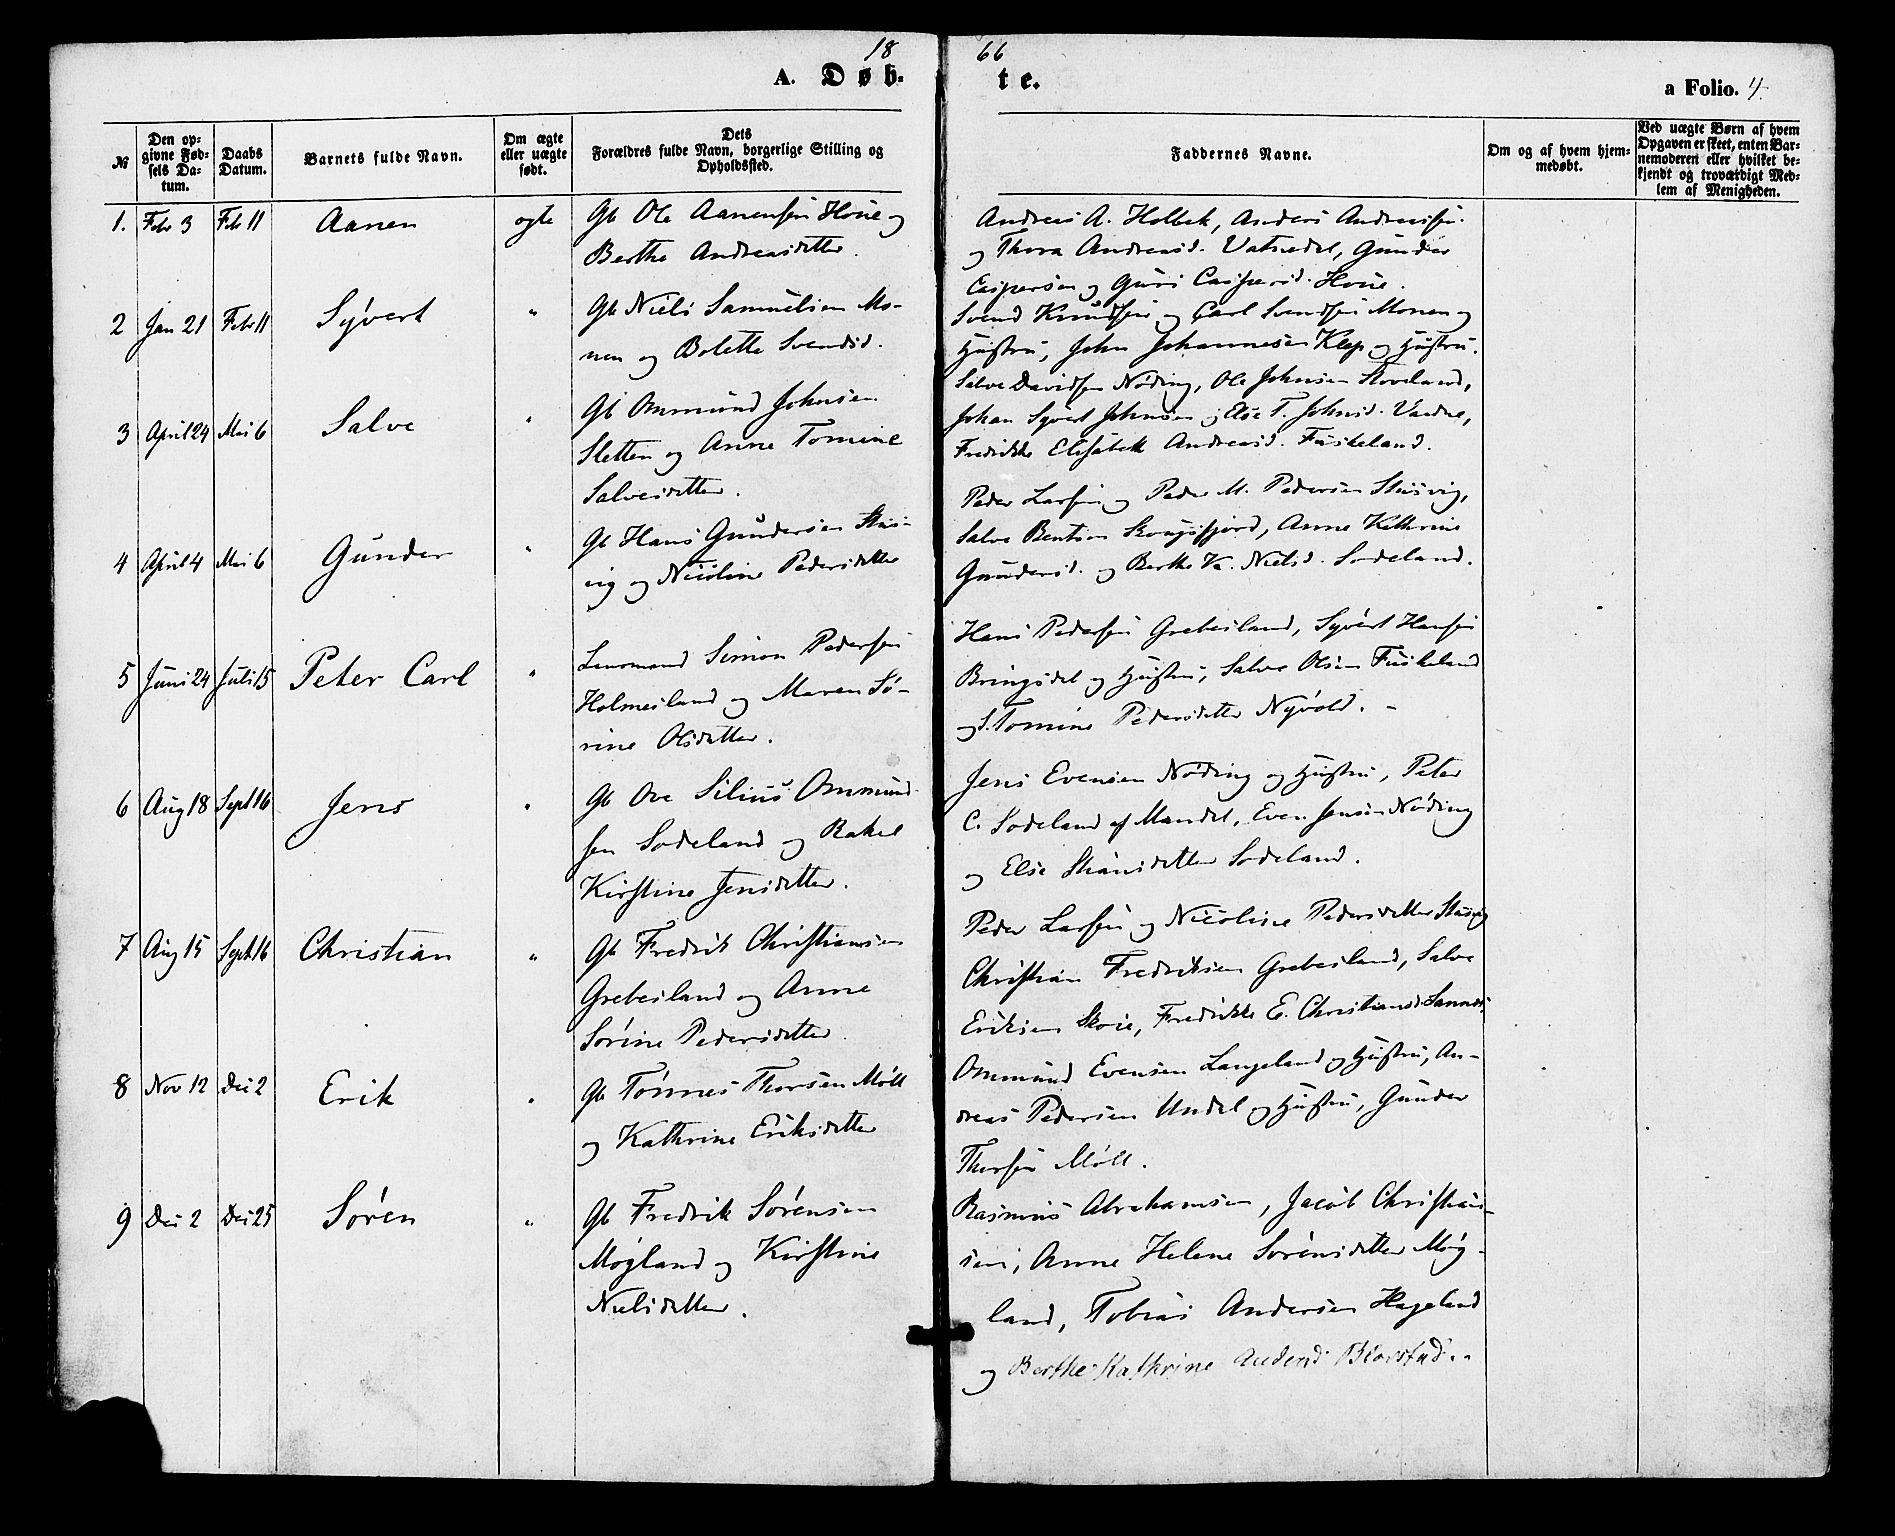 18 66
A. Døb- te. a Folio. 4.
№
Den op-
givne Fød-
sels Da-
tum.
Daabs
Datum.
Barnets fulde Navn.
Om ægte
eller uægte
født.
Dets
Forældres fulde Navn, borgerlige Stilling og
Opholdssted.
Faddernes Navne.
Om og af hvem hjem-
medøbt.
Ved uægte Børn af hvem
Opgaven er skeet, enten Bar-
nemoderen eller hvilket be-
kjendt og troværdigt Med-
lem af Menigheden.
1. Febr 3 Feb 11 Aanen ægte Gb Ole Aanensen Houe og
Berthe Andreasdatter.
Andreas A. Holbek, Anders Andreassen
og Thora Andreasd. Vatnedal, Gunder
Caspersen og Guri Caspersd. Houe.
2 Jan 21 Febr 11 Syvert " Gb Niels Samuelsen Mo-
nen og Bolette Svendsd.
Svend Knudsen og Carl Svendsen Monen og
Hustru, John Johannesen Klep og Hustru.
3 April 24 Mai 6 Salve " Gb Ommund Johnsen
Sletten og Anne Tomine
Salvesdatter.
Salve Davidsen Nøding, Ole Johnsen Stoveland,
Johan Syvert Johnsen og Else T. Johnsd.
Fredrikke Elisabeth Andreasd. Fuskeland.
4 April 4 Mai 6 Gunder " Gb Hans Gundersen Stus-
vig og Nicoline Pedersdatter
Peder Larsen og Peder M. Pedersen Stusvig,
Salve Bentsen Skougsfjord, Anne Kathrine
Gundersd. og Berthe K. Nielsd. Sodeland.
5 Juni 24 Juli 15 Peter Carl " Lensmand Simon Pedersen
Holmesland og Maren Sø-
rine Olsdatter.
Hans Pedersen Grebesland, Syvert Hansen
Bringsdal og Hustru, Salve Olsen Fuskeland
og S. Tomine Pedersdatter Nyvold. -
6 Aug 18 Sept 16 Jens " Gb Ove Silius Ommund-
sen Sodeland og Rakel
Kirstine Jensdatter.
Jens Evensen Nøding og Hustru, Peter
C. Sodeland af Mandal, Even Jensen Nøding
og Else Sodeland.
7 Aug 15 Sept 16 Christian " Gb Fredrik Christiansen
Grebesland og Anne
Sørine Pedersdatter.
Peder Larsen og Nicoline Pedersdatter Stusvig
Christian Fredriksen Grebesland, Salve
Eriksen Skoie, Fredrikke E. Christiansd. Sannes.
8 Nov 12 Dec 2 Erik " Gb Tønnes Thorsen Møll
og Kathrine Eriksdatter
Ommund Evensen Langeland og Hustru, An-
dreas Pedersen Undal og Hustru, Gunder
Thorsen Møll.
9 Dec 2 Dec 25 Søren " Gb Fredrik Sørensen
Møgland og Kirstine
Nielsdatter.
Rasmus Abrahamsen, Jacob Christian-
sen, Anne Helene Sørensdatter Møg-
land, Tobias Andersen Hageland
og Berthe Kathrine Andersd.